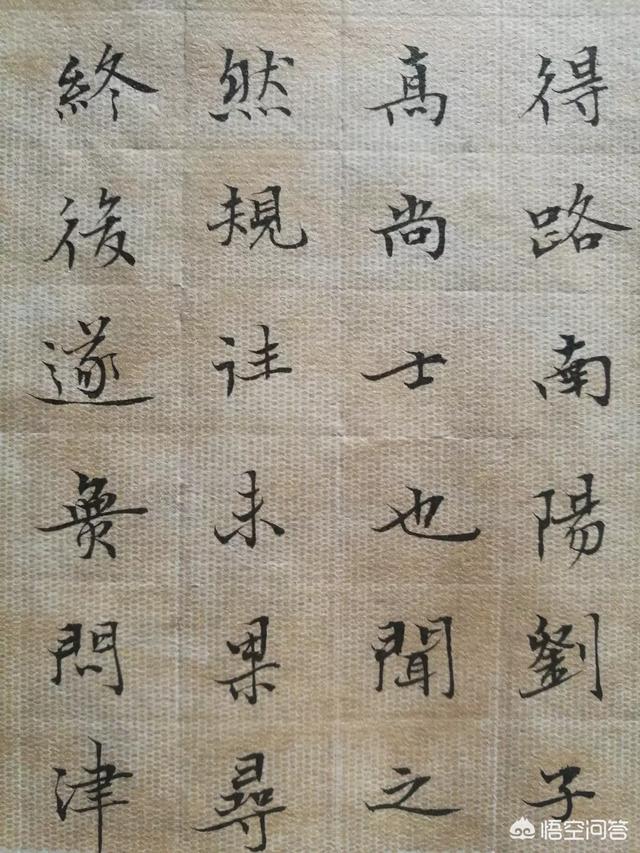 得路南陽劉子
高尚士也聞之
然規往未果尋
終後遂無問津
悟空问答